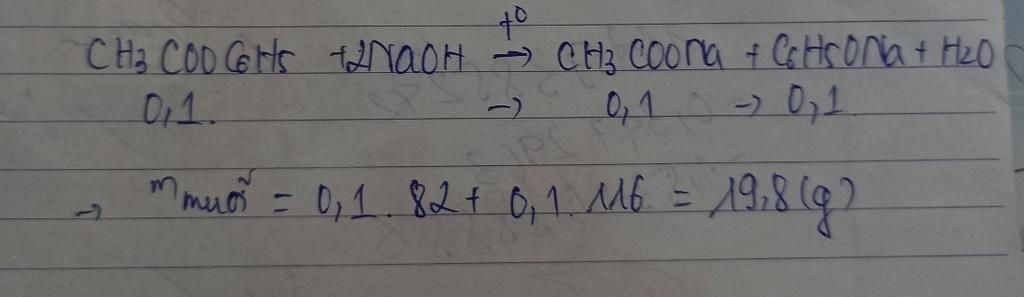 t⁰
CH3COOC6H5 +2NaOH → CH3COONa + C6H5ONa + H2O
0,1. → 0,1 → 0,1
→ mmuối = 0,1.82 + 0,1.116 = 19,8(g)